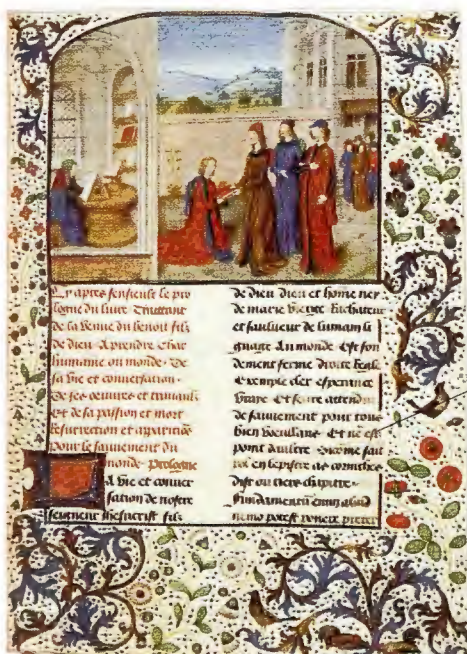 Cy apres sensieult le pro
logue du liure Traittant
de la Venue du benoit filz
de dieu A prendre char
humaine ou monde · De
sa vie et conuersation ·
De ses oeuures et trauaulx
Et de sa passion et mort
Resurrection et aparition
pour le sauuement du
monde · Prologue
La Vie et conuer
sation de nostre
seigneur ihesucrist filz
de dieu dieu et home ney
de marie Vierge
et sauueur de lumain li
gnage Au monde Est fon
dement ferme droite Reale
Exemple cler esperance
Vraye Et seure attendue
de sauuement pour tous
bien Et ne est
point Aultre
pol en lepistre as corinthes
dist ou tiers chapitre ·
Fundamentu enim aliud
nemo potest ponere preter